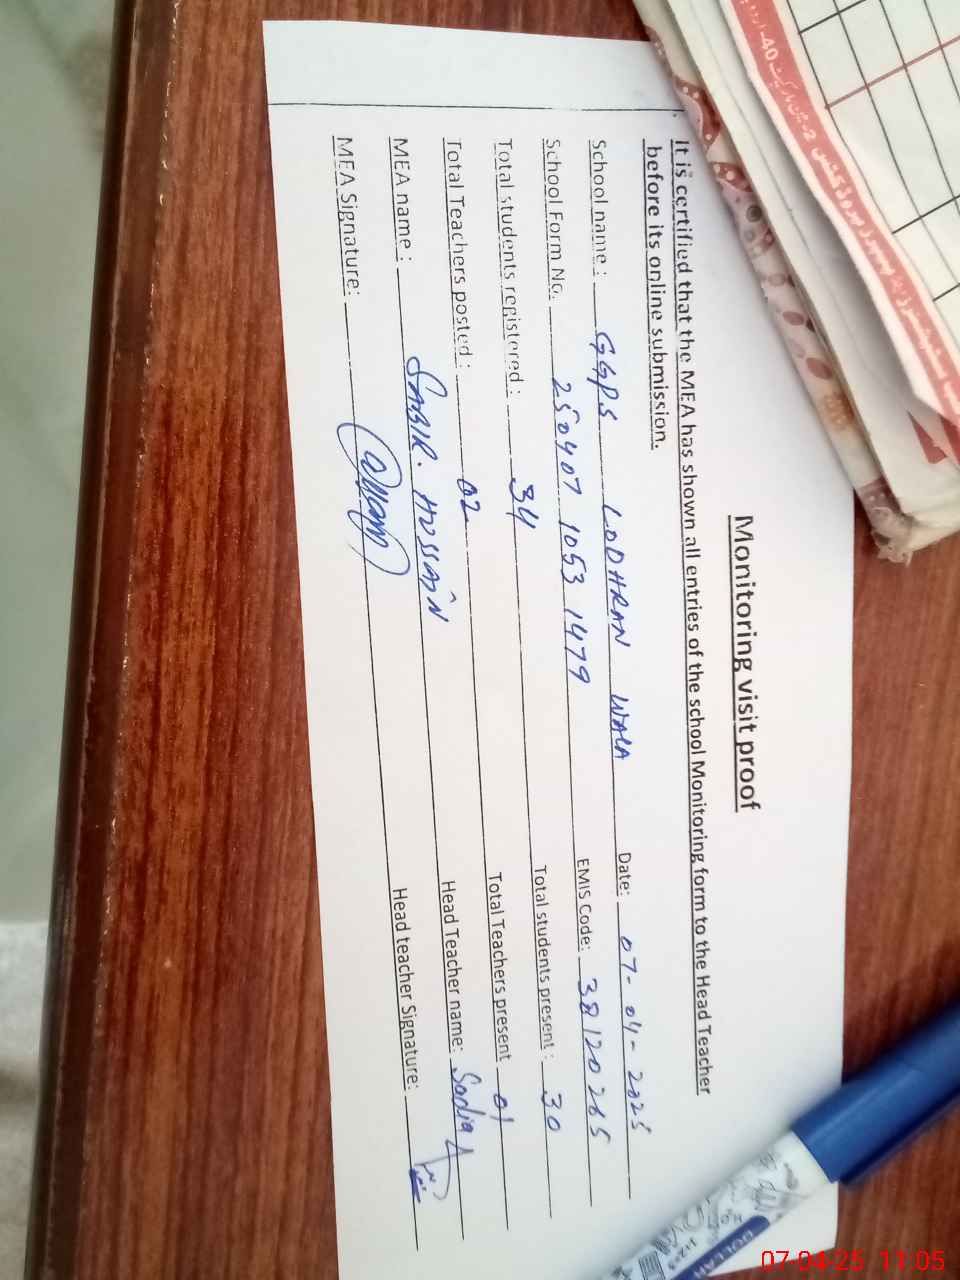 Monitoring visit proof
It is certified that the MEA has shown all entries of the school Monitoring form to the Head Teacher
before its online submission.
School name : GGPS LODHRAN WALA Date: 07-04-2025
School Form No. 250407 1053 1479 EMIS Code: 38120265
Total students registered : 34 Total students present : 30
Total Teachers posted : 02 Total Teachers present 01
MEA name : SABIR. HUSSAIN Head Teacher name: Sadia
MEA Signature: Head teacher Signature:
DOLLAR
07-04-25 11:05